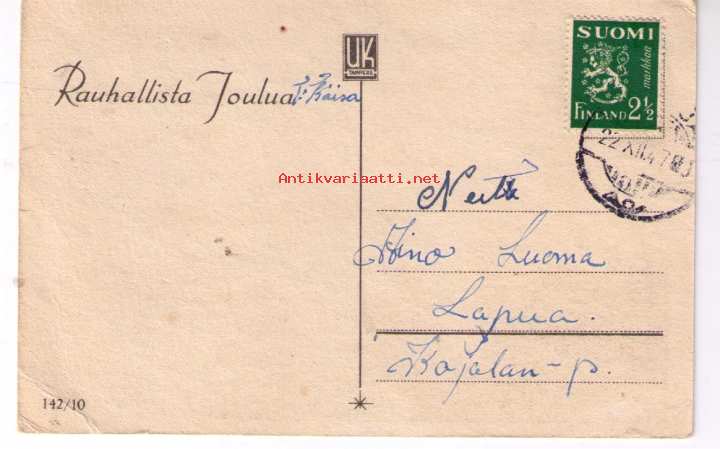 UK
TAMPERE
SUOMI
markkaa
FINLAND 2½
Rauhallista Joulua T: Raisa
22.XII.47
Antikvariaatti.net
Neiti
Aino Luoma
Lapua.
Kojolan-p.
142/10